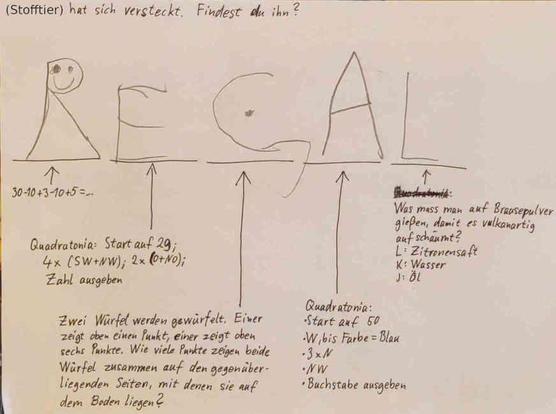 (Stofftier) hat sich versteckt. Findest du ihn?
R E G A L
30-10+3-10+5=...
Quadratonia: Start auf 29;
4x (SW+NW); 2x (O+NO);
Zahl ausgeben
Zwei Würfel werden gewürfelt. Einer
zeigt oben einen Punkt, einer zeigt oben
sechs Punkte. Wie viele Punkte zeigen beide
Würfel zusammen auf den gegenüber-
liegenden Seiten, mit denen sie auf
dem Boden liegen?
Quadratonia:
•Start auf 50
•W, bis Farbe=Blau
•3xN
•NW
•Buchstabe ausgeben
Quadratonia:
Was muss man auf Brausepulver
gießen, damit es vulkanartig
aufschäumt?
L: Zitronensaft
K: Wasser
J: Öl